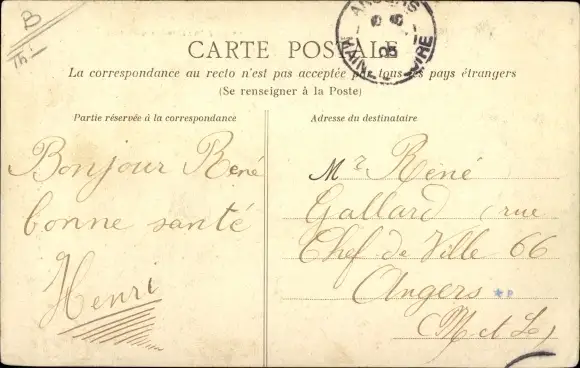 B
ANGERS
05
MAINE LOIRE
CARTE POSTALE
La correspondance au recto n'est pas acceptée par tous les pays étrangers
(Se renseigner à la Poste)
Partie réservée à la correspondance
Bonjour René
bonne santé
Henri
Adresse du destinataire
Mr René
Gallard rue
Chef de Ville 66
Angers
(M et L)